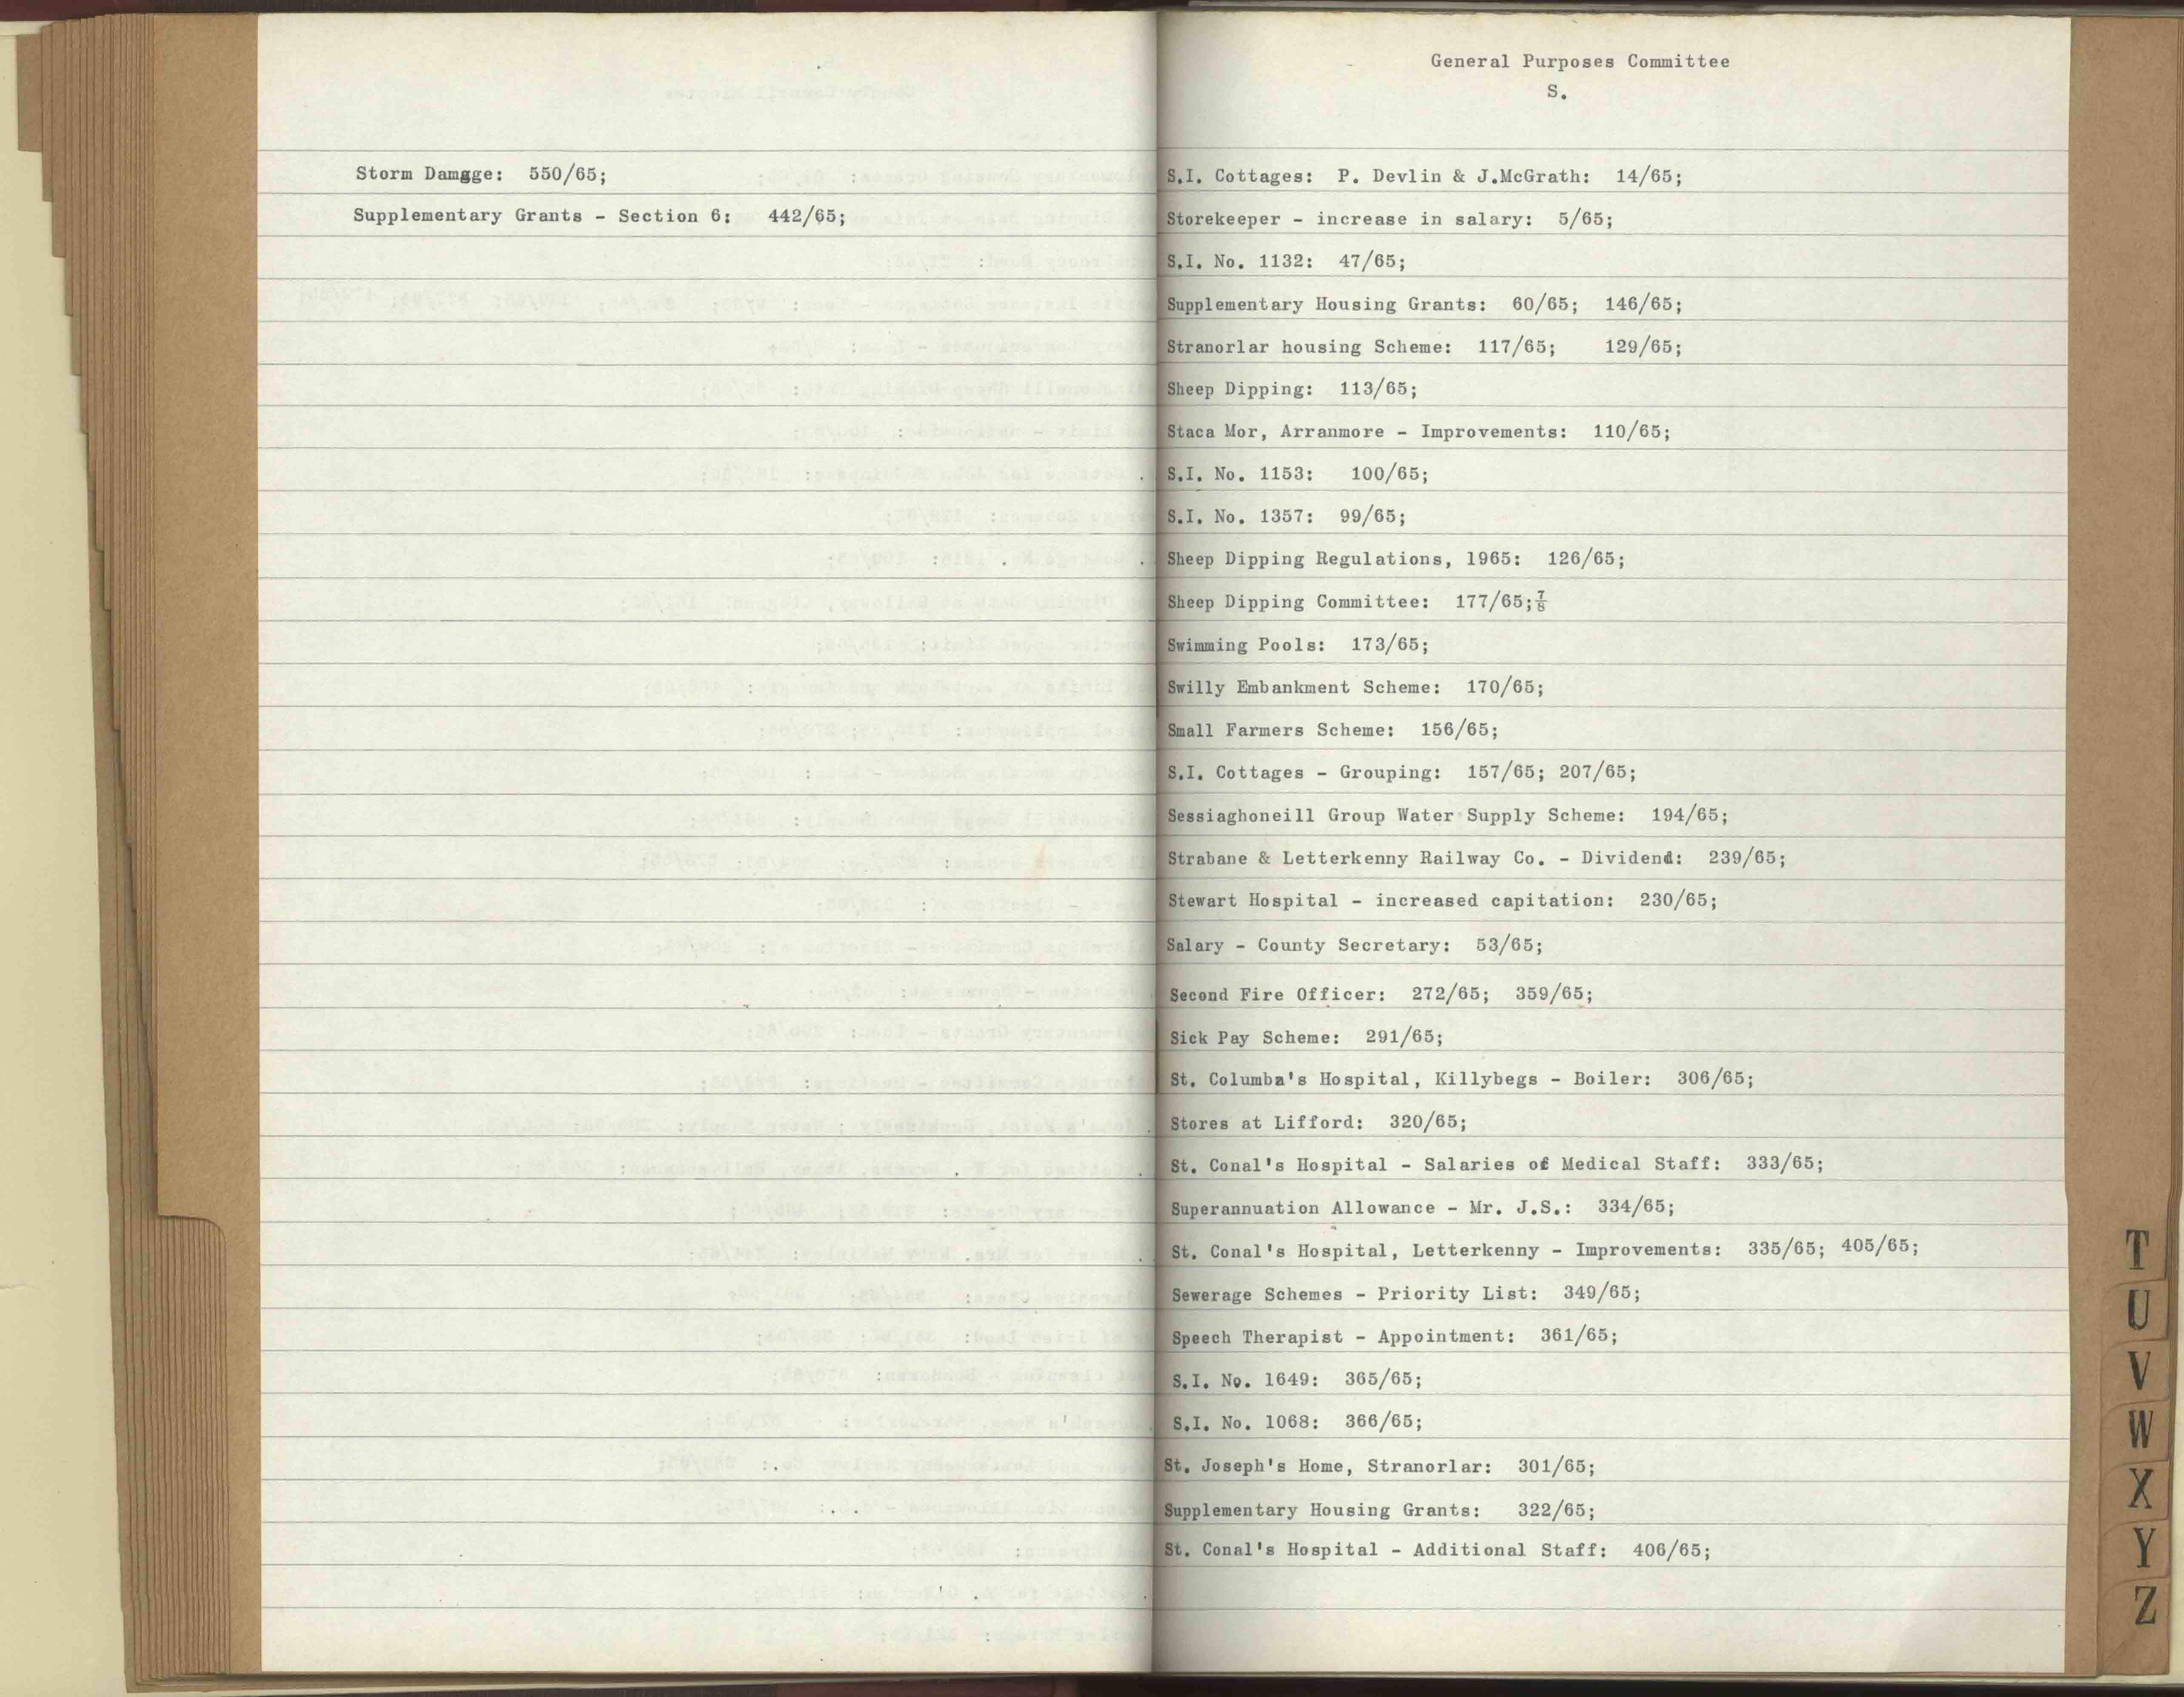 Storm Damgge: 550/65;
Supplementary Grants - Section 6: 442/65;
General Purposes Committee
S.
S.I. Cottages: P. Devlin & J.McGrath: 14/65;
Storekeeper - increase in salary: 5/65;
S.I. No. 1132: 47/65;
Supplementary Housing Grants: 60/65; 146/65;
Stranorlar housing Scheme: 117/65; 129/65;
Sheep Dipping: 113/65;
Staca Mor, Arranmore - Improvements: 110/65;
S.I. No. 1153: 100/65;
S.I. No. 1357: 99/65;
Sheep Dipping Regulations, 1965: 126/65;
Sheep Dipping Committee: 177/65;⅞
Swimming Pools: 173/65;
Swilly Embankment Scheme: 170/65;
Small Farmers Scheme: 156/65;
S.I. Cottages - Grouping: 157/65; 207/65;
Sessiaghoneill Group Water Supply Scheme: 194/65;
Strabane & Letterkenny Railway Co. - Dividend: 239/65;
Stewart Hospital - increased capitation: 230/65;
Salary - County Secretary: 53/65;
Second Fire Officer: 272/65; 359/65;
Sick Pay Scheme: 291/65;
St. Columba's Hospital, Killybegs - Boiler: 306/65;
Stores at Lifford: 320/65;
St. Conal's Hospital - Salaries of Medical Staff: 333/65;
Superannuation Allowance - Mr. J.S.: 334/65;
St. Conal's Hospital, Letterkenny - Improvements: 335/65; 405/65;
Sewerage Schemes - Priority List: 349/65;
Speech Therapist - Appointment: 361/65;
S.I. No. 1649: 365/65;
S.I. No. 1068: 366/65;
St. Joseph's Home, Stranorlar: 301/65;
Supplementary Housing Grants: 322/65;
St. Conal's Hospital - Additional Staff: 406/65;
T
U
V
W
X
Y
Z